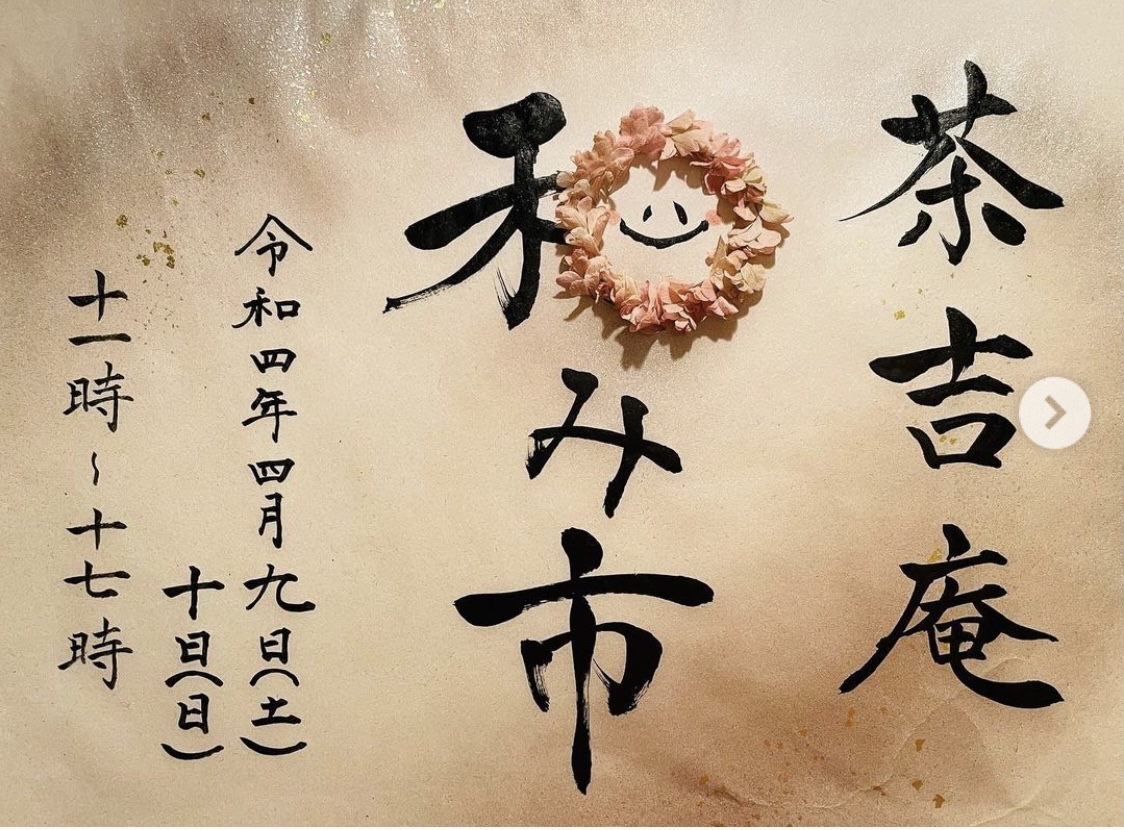 茶吉庵
和み市
令和四年四月九日(土)
十日(日)
十一時〜十七時